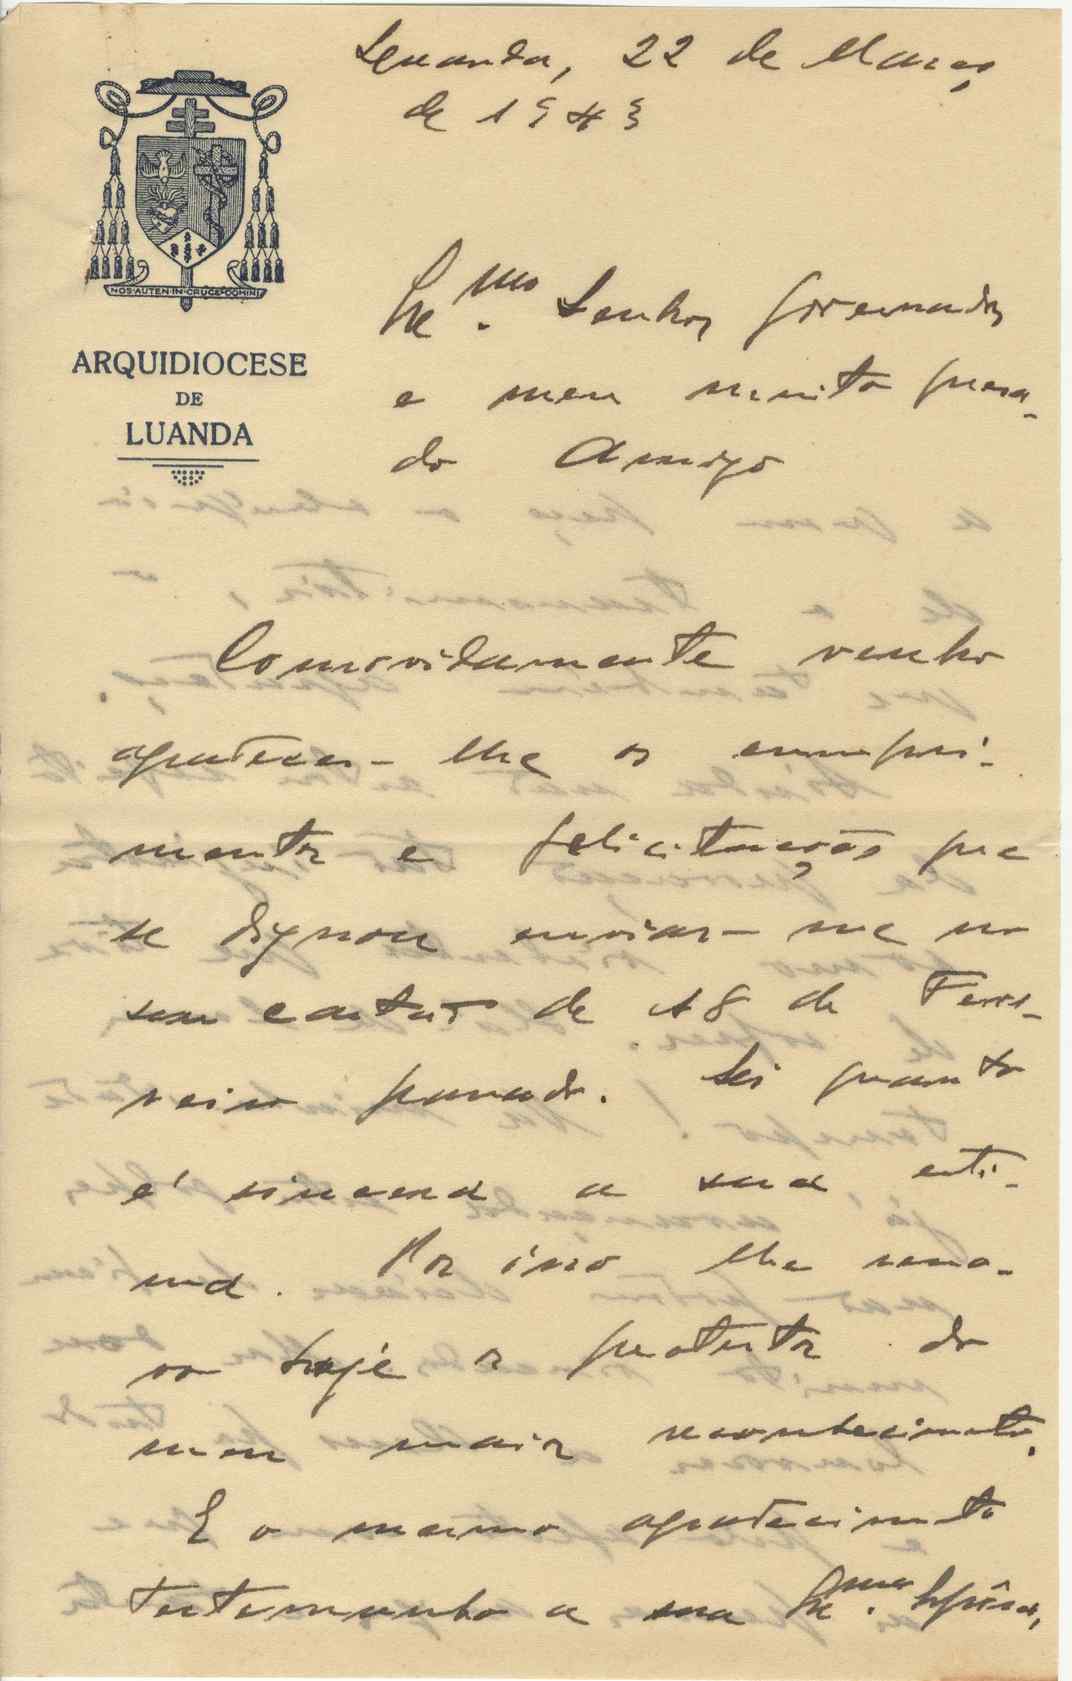 Luanda, 22 de Março
de 1943
NOS·AUTEN·IN·CRUCE·DOMINI
ARQUIDIOCESE
DE
LUANDA
Ex.mo Senhor Governador
e meu muito preza-
do Amigo
Comovidamente venho
agradecer-lhe os cumpri-
mentos e felicitações que
se dignou enviar-me no
seu cartão de 18 de Feve-
reiro passado. Sei quanto
é sincera a sua esti-
ma. Por isso lhe reno-
vo hoje os protestos do
meu maior reconhecimento.
E o mesmo agradecimento
testemunho a sua Ex.ma Espôsa,